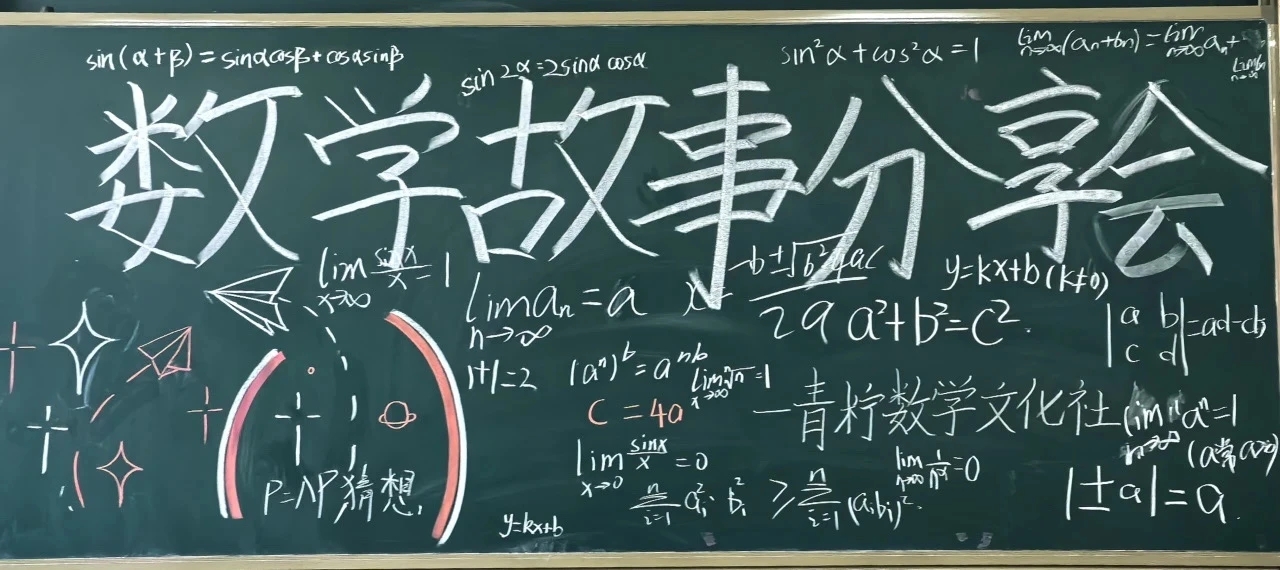 sin(α+β)=sinαcosβ+cosαsinβ
sin2α=2sinα cosα
sin²α+cos²α=1
lim n→∞ (an+bn)=lim n→∞ an+
lim bn n→∞
数学故事分享会
lim x→∞ sinx/x=1
lim an=a n→∞
x=-b±√b²-4ac/2a
y=kx+b(k≠0)
a²+b²=c².
|a b c d|=ad-cb
1+1=2
(aⁿ)ᵇ=aⁿᵇ
lim x→∞ ⁿ√n=1
C=4a
—青柠数学文化社
lim n→∞ ⁿ√a=1
(a常a>0)
lim x→0 sinx/x=0
lim n→∞ 1/nᵅ=0
P=NP猜想
n Σ i=1 ai²·bi² ≥ n Σ i=1 (aibi)².
|±a|=a.
y=kx+b